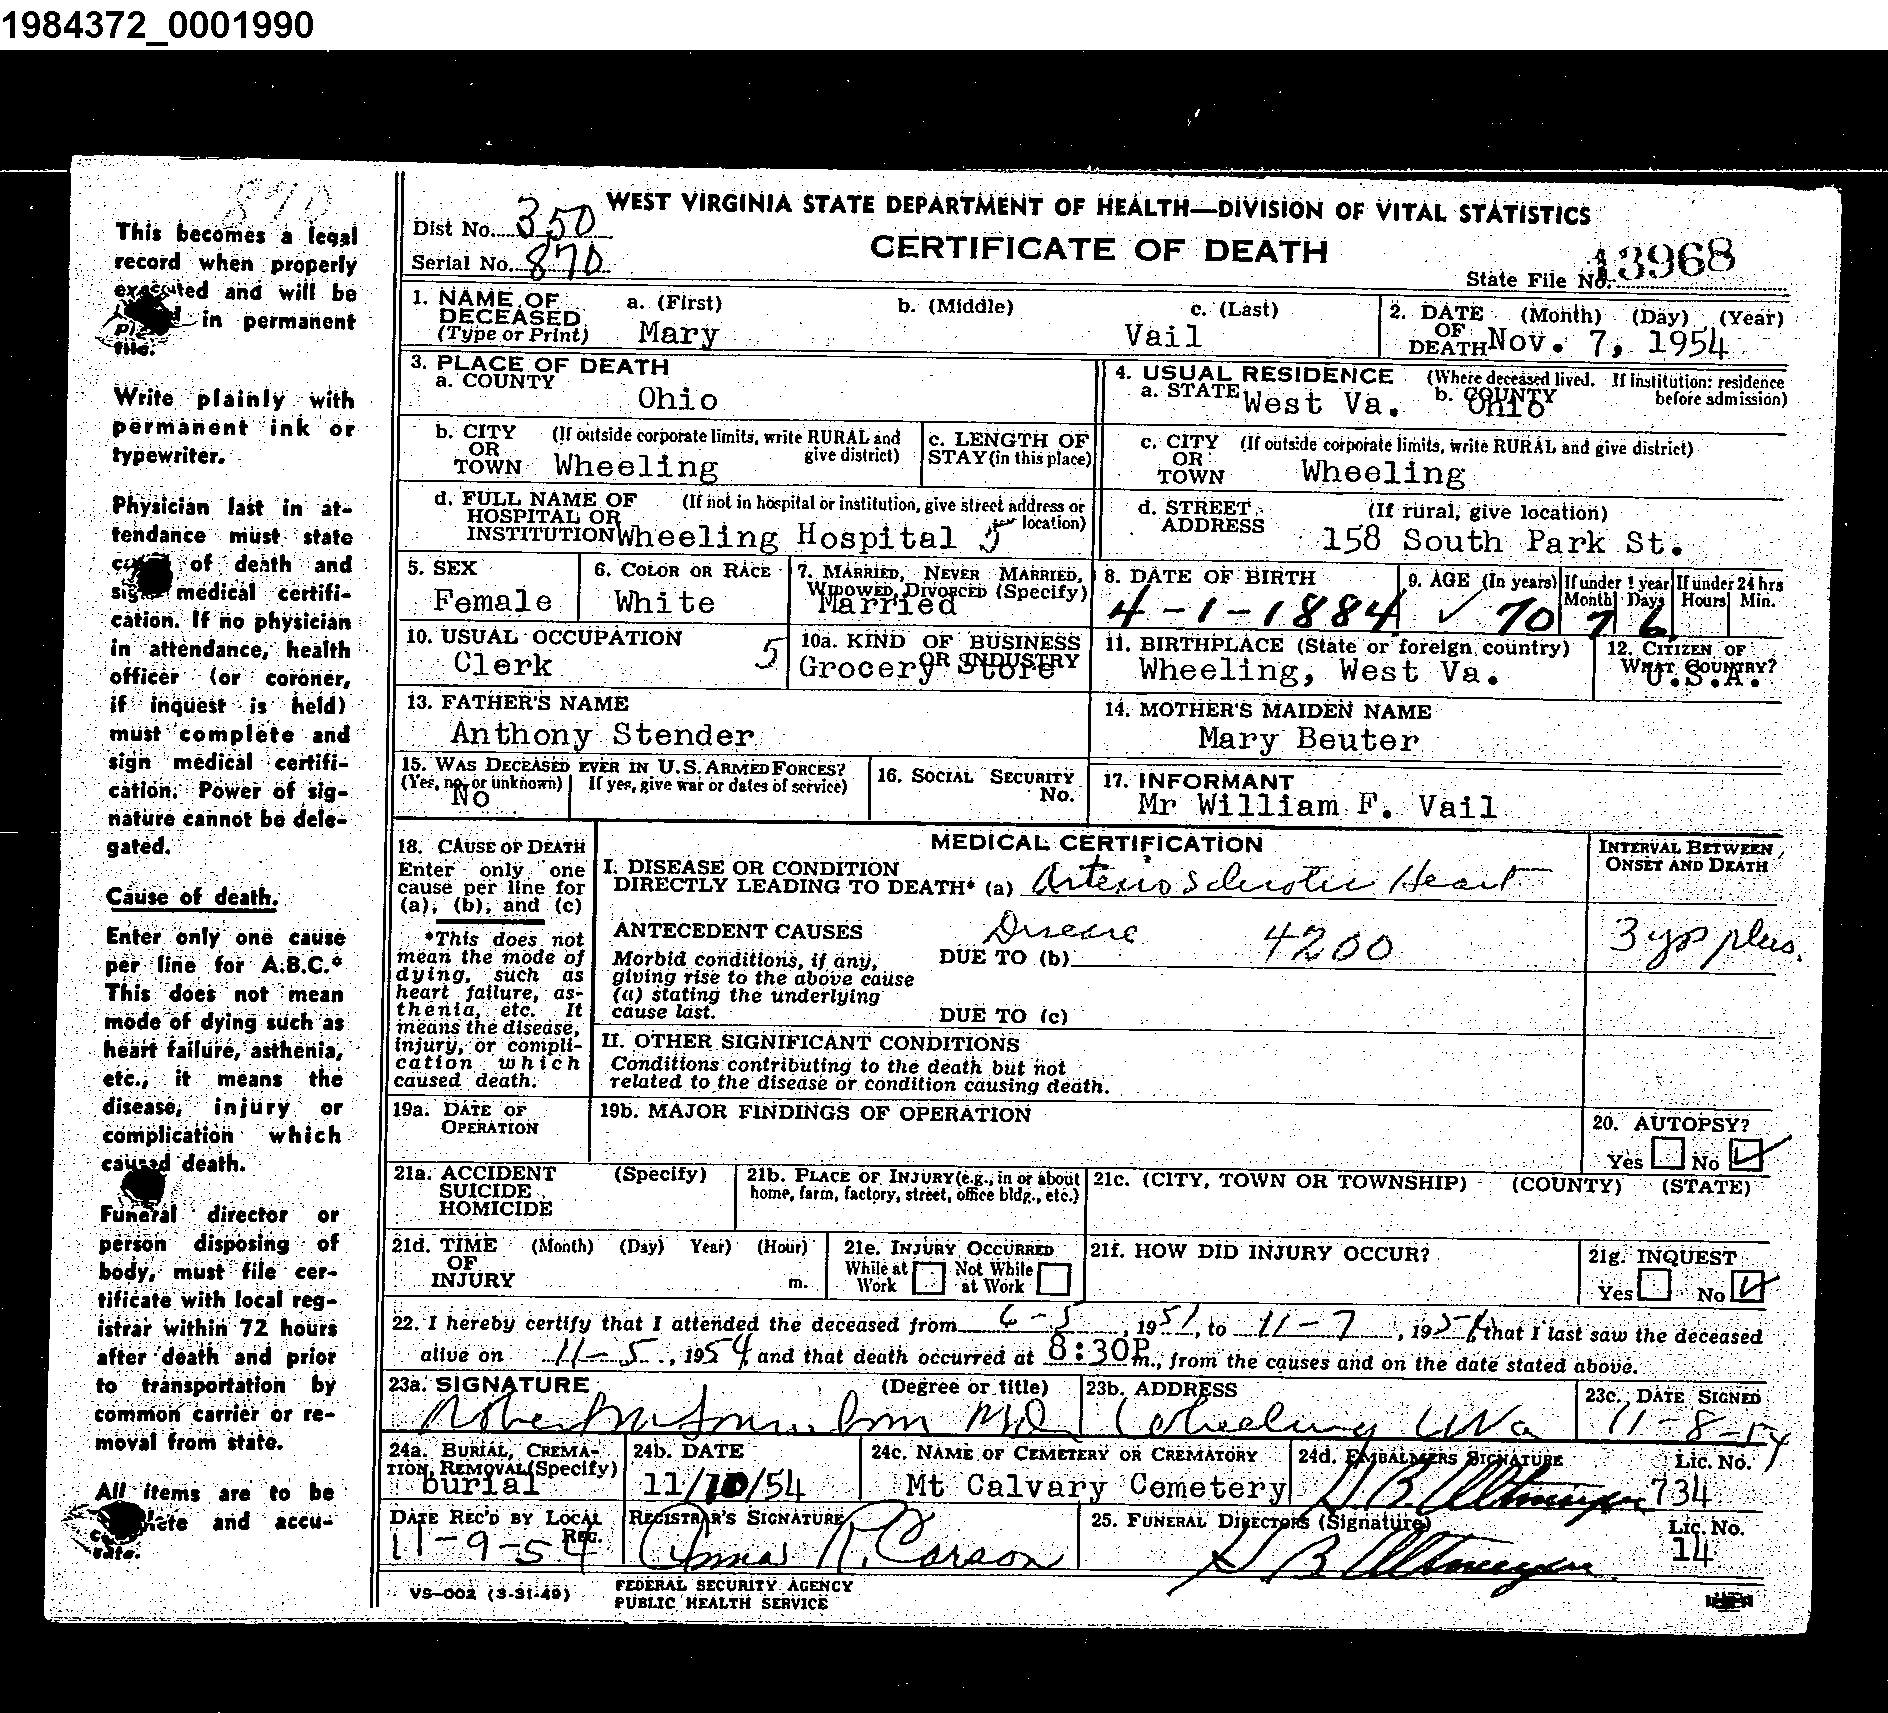 1984372_0001990
890
This becomes a legal
record when properly
executed and will be
in permanent
file.
Write plainly with
permanent ink or
typewriter.
Physician last in at-
tendance must state
of death and
medical certifi-
cation. If no physician
in attendance, health
officer (or coroner,
if inquest is held)
must complete and
sign medical certifi-
cation. Power of sig-
nature cannot be dele-
gated.
Cause of death.
Enter only one cause
per line for A.B.C.*
This does not mean
mode of dying such as
heart failure, asthenia,
etc., it means the
disease, injury or
complication which
caused death.
Funeral director or
person disposing of
body, must file cer-
tificate with local reg-
istrar within 72 hours
after death and prior
to transportation by
common carrier or re-
moval from state.
All items are to be
and accu-
rate.
WEST VIRGINIA STATE DEPARTMENT OF HEALTH—DIVISION OF VITAL STATISTICS
Dist No. 350
CERTIFICATE OF DEATH
Serial No. 870
State File No. 13968
1. NAME OF DECEASED (Type or Print) a. (First) b. (Middle) c. (Last)
Mary Vail
2. DATE OF DEATH (Month) (Day) (Year)
Nov. 7, 1954
3. PLACE OF DEATH
a. COUNTY
Ohio
4. USUAL RESIDENCE (Where deceased lived. If institution: residence before admission)
a. STATE West Va. b. COUNTY Ohio
b. CITY OR TOWN (If outside corporate limits, write RURAL and give district)
Wheeling
c. LENGTH OF STAY (in this place)
c. CITY OR TOWN (If outside corporate limits, write RURAL and give district)
Wheeling
d. FULL NAME OF HOSPITAL OR INSTITUTION (If not in hospital or institution, give street address or location)
Wheeling Hospital 5
d. STREET ADDRESS (If rural, give location)
158 South Park St.
5. SEX
Female
6. COLOR OR RACE
White
7. MARRIED, NEVER MARRIED, WIDOWED, DIVORCED (Specify)
Married
8. DATE OF BIRTH
4-1-1884
9. AGE (In years) If under 1 year Month Days If under 24 hrs Hours Min.
✓ 70 7 6
10. USUAL OCCUPATION
Clerk 5
10a. KIND OF BUSINESS OR INDUSTRY
Grocery Store
11. BIRTHPLACE (State or foreign country)
Wheeling, West Va.
12. CITIZEN OF WHAT COUNTRY?
U.S.A.
13. FATHER'S NAME
Anthony Stender
14. MOTHER'S MAIDEN NAME
Mary Beuter
15. WAS DECEASED EVER IN U.S. ARMED FORCES?
(Yes, no, or unknown) If yes, give war or dates of service)
No
16. SOCIAL SECURITY No.
17. INFORMANT
Mr William F. Vail
18. CAUSE OF DEATH
Enter only one
cause per line for
(a), (b), and (c)
*This does not
mean the mode of
dying, such as
heart failure, as-
thenia, etc. It
means the disease,
injury, or compli-
cation which
caused death.
MEDICAL CERTIFICATION
INTERVAL BETWEEN ONSET AND DEATH
I. DISEASE OR CONDITION
DIRECTLY LEADING TO DEATH* (a) Arterio Sclerotic Heart
Disease 4200 3 yrs plus.
ANTECEDENT CAUSES
Morbid conditions, if any, DUE TO (b)
giving rise to the above cause
(a) stating the underlying
cause last. DUE TO (c)
II. OTHER SIGNIFICANT CONDITIONS
Conditions contributing to the death but not
related to the disease or condition causing death.
19a. DATE OF OPERATION
19b. MAJOR FINDINGS OF OPERATION
20. AUTOPSY?
Yes No ✓
21a. ACCIDENT SUICIDE HOMICIDE (Specify)
21b. PLACE OF INJURY (e.g., in or about home, farm, factory, street, office bldg., etc.)
21c. (CITY, TOWN OR TOWNSHIP) (COUNTY) (STATE)
21d. TIME OF INJURY (Month) (Day) Year) (Hour) m.
21e. INJURY OCCURRED
While at Work Not While at Work
21f. HOW DID INJURY OCCUR?
21g. INQUEST
Yes No ✓
22. I hereby certify that I attended the deceased from 6-5, 1951, to 11-7, 1954, that I last saw the deceased
alive on 11-5, 1954, and that death occurred at 8:30P m., from the causes and on the date stated above.
23a. SIGNATURE (Degree or title)
Robert M. MD
23b. ADDRESS
Wheeling W Va
23c. DATE SIGNED
11-8-54
24a. BURIAL, CREMATION, REMOVAL (Specify)
burial
24b. DATE
11/10/54
24c. NAME OF CEMETERY OR CREMATORY
Mt Calvary Cemetery
24d. EMBALMERS SIGNATURE Lic. No.
H. B. Altmeyer 734
DATE REC'D BY LOCAL REG.
11-9-54
REGISTRAR'S SIGNATURE
Anna R. Carson
25. FUNERAL DIRECTORS (Signature) Lic. No.
H B Altmeyer 14
VS-002 (3-31-49)
FEDERAL SECURITY AGENCY
PUBLIC HEALTH SERVICE